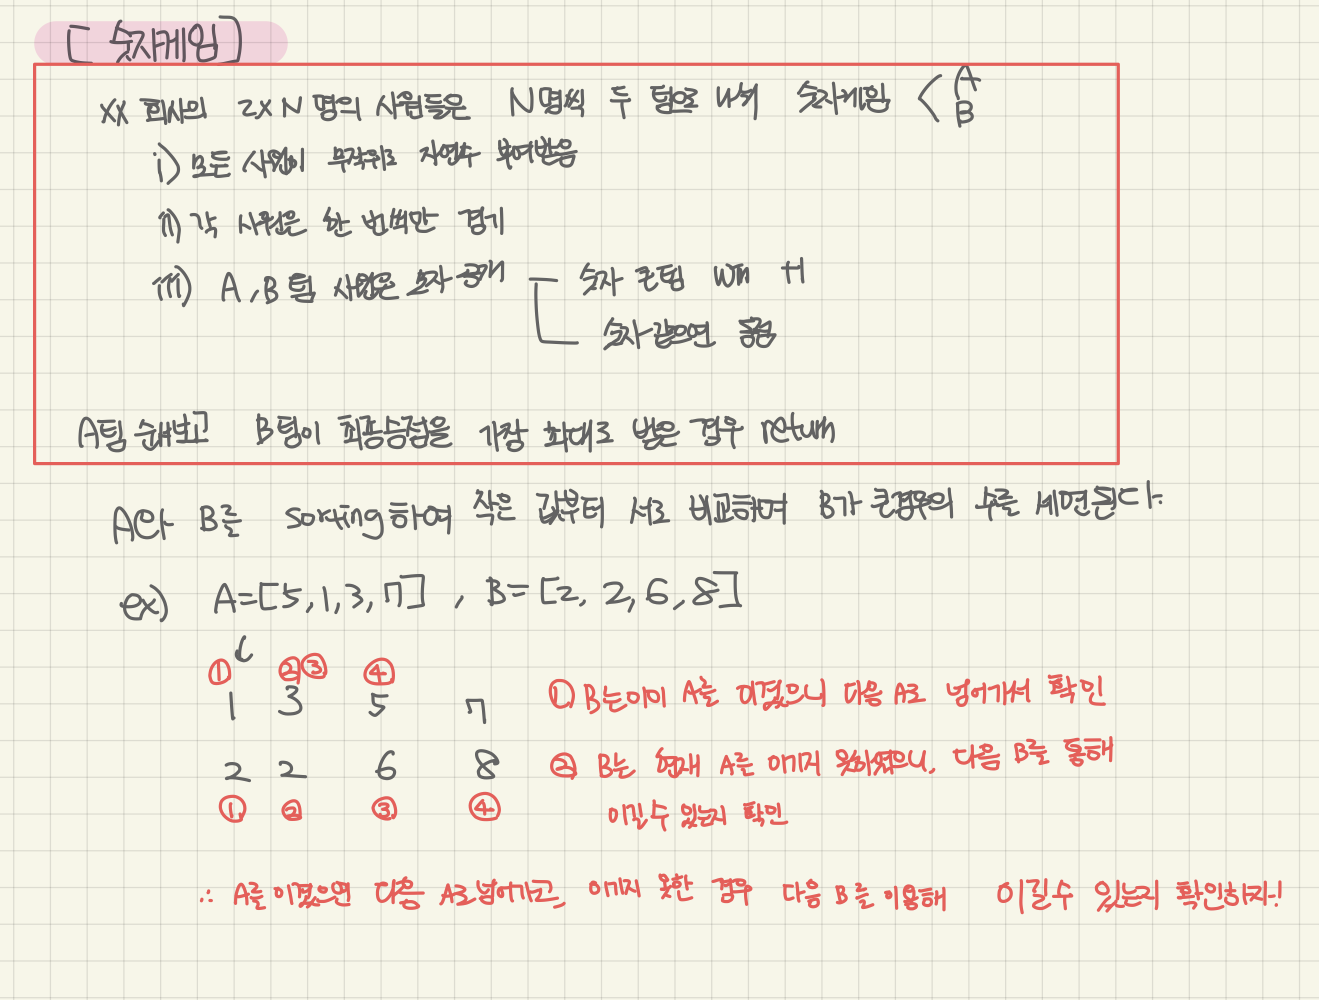 [숫자게임]
XX 회사의 2XN 명의 사원들은 N명씩 두 팀으로 나눠 숫자게임 < A B
i) 모든 사원이 무작위로 자연수 부여받음
ii) 각 사원은 한 번씩만 경기
iii) A, B팀 사원은 숫자 공개 - 숫자 큰팀 win +1
숫자 같으면 동점
A팀 순서보고 B팀이 최종승점을 가장 최대로 받은 경우 return
A와 B를 sorting하여 작은 값부터 서로 비교하며 B가 큰경우의 수를 세면된다.
ex) A=[5,1,3,7], B=[2, 2,6,8]
① ②③ ④
1 3 5 7
2 2 6 8
① ② ③ ④
① B는이미 A를 이겼으니 다음 A로 넘어가서 확인
② B는 현재 A를 이기지 못하였으니, 다음 B를 통해
이길수 있는지 확인
∴ A를 이겼으면 다음 A로넘어가고, 이기지 못한 경우 다음 B를 이용해 이길수 있는지 확인하자!